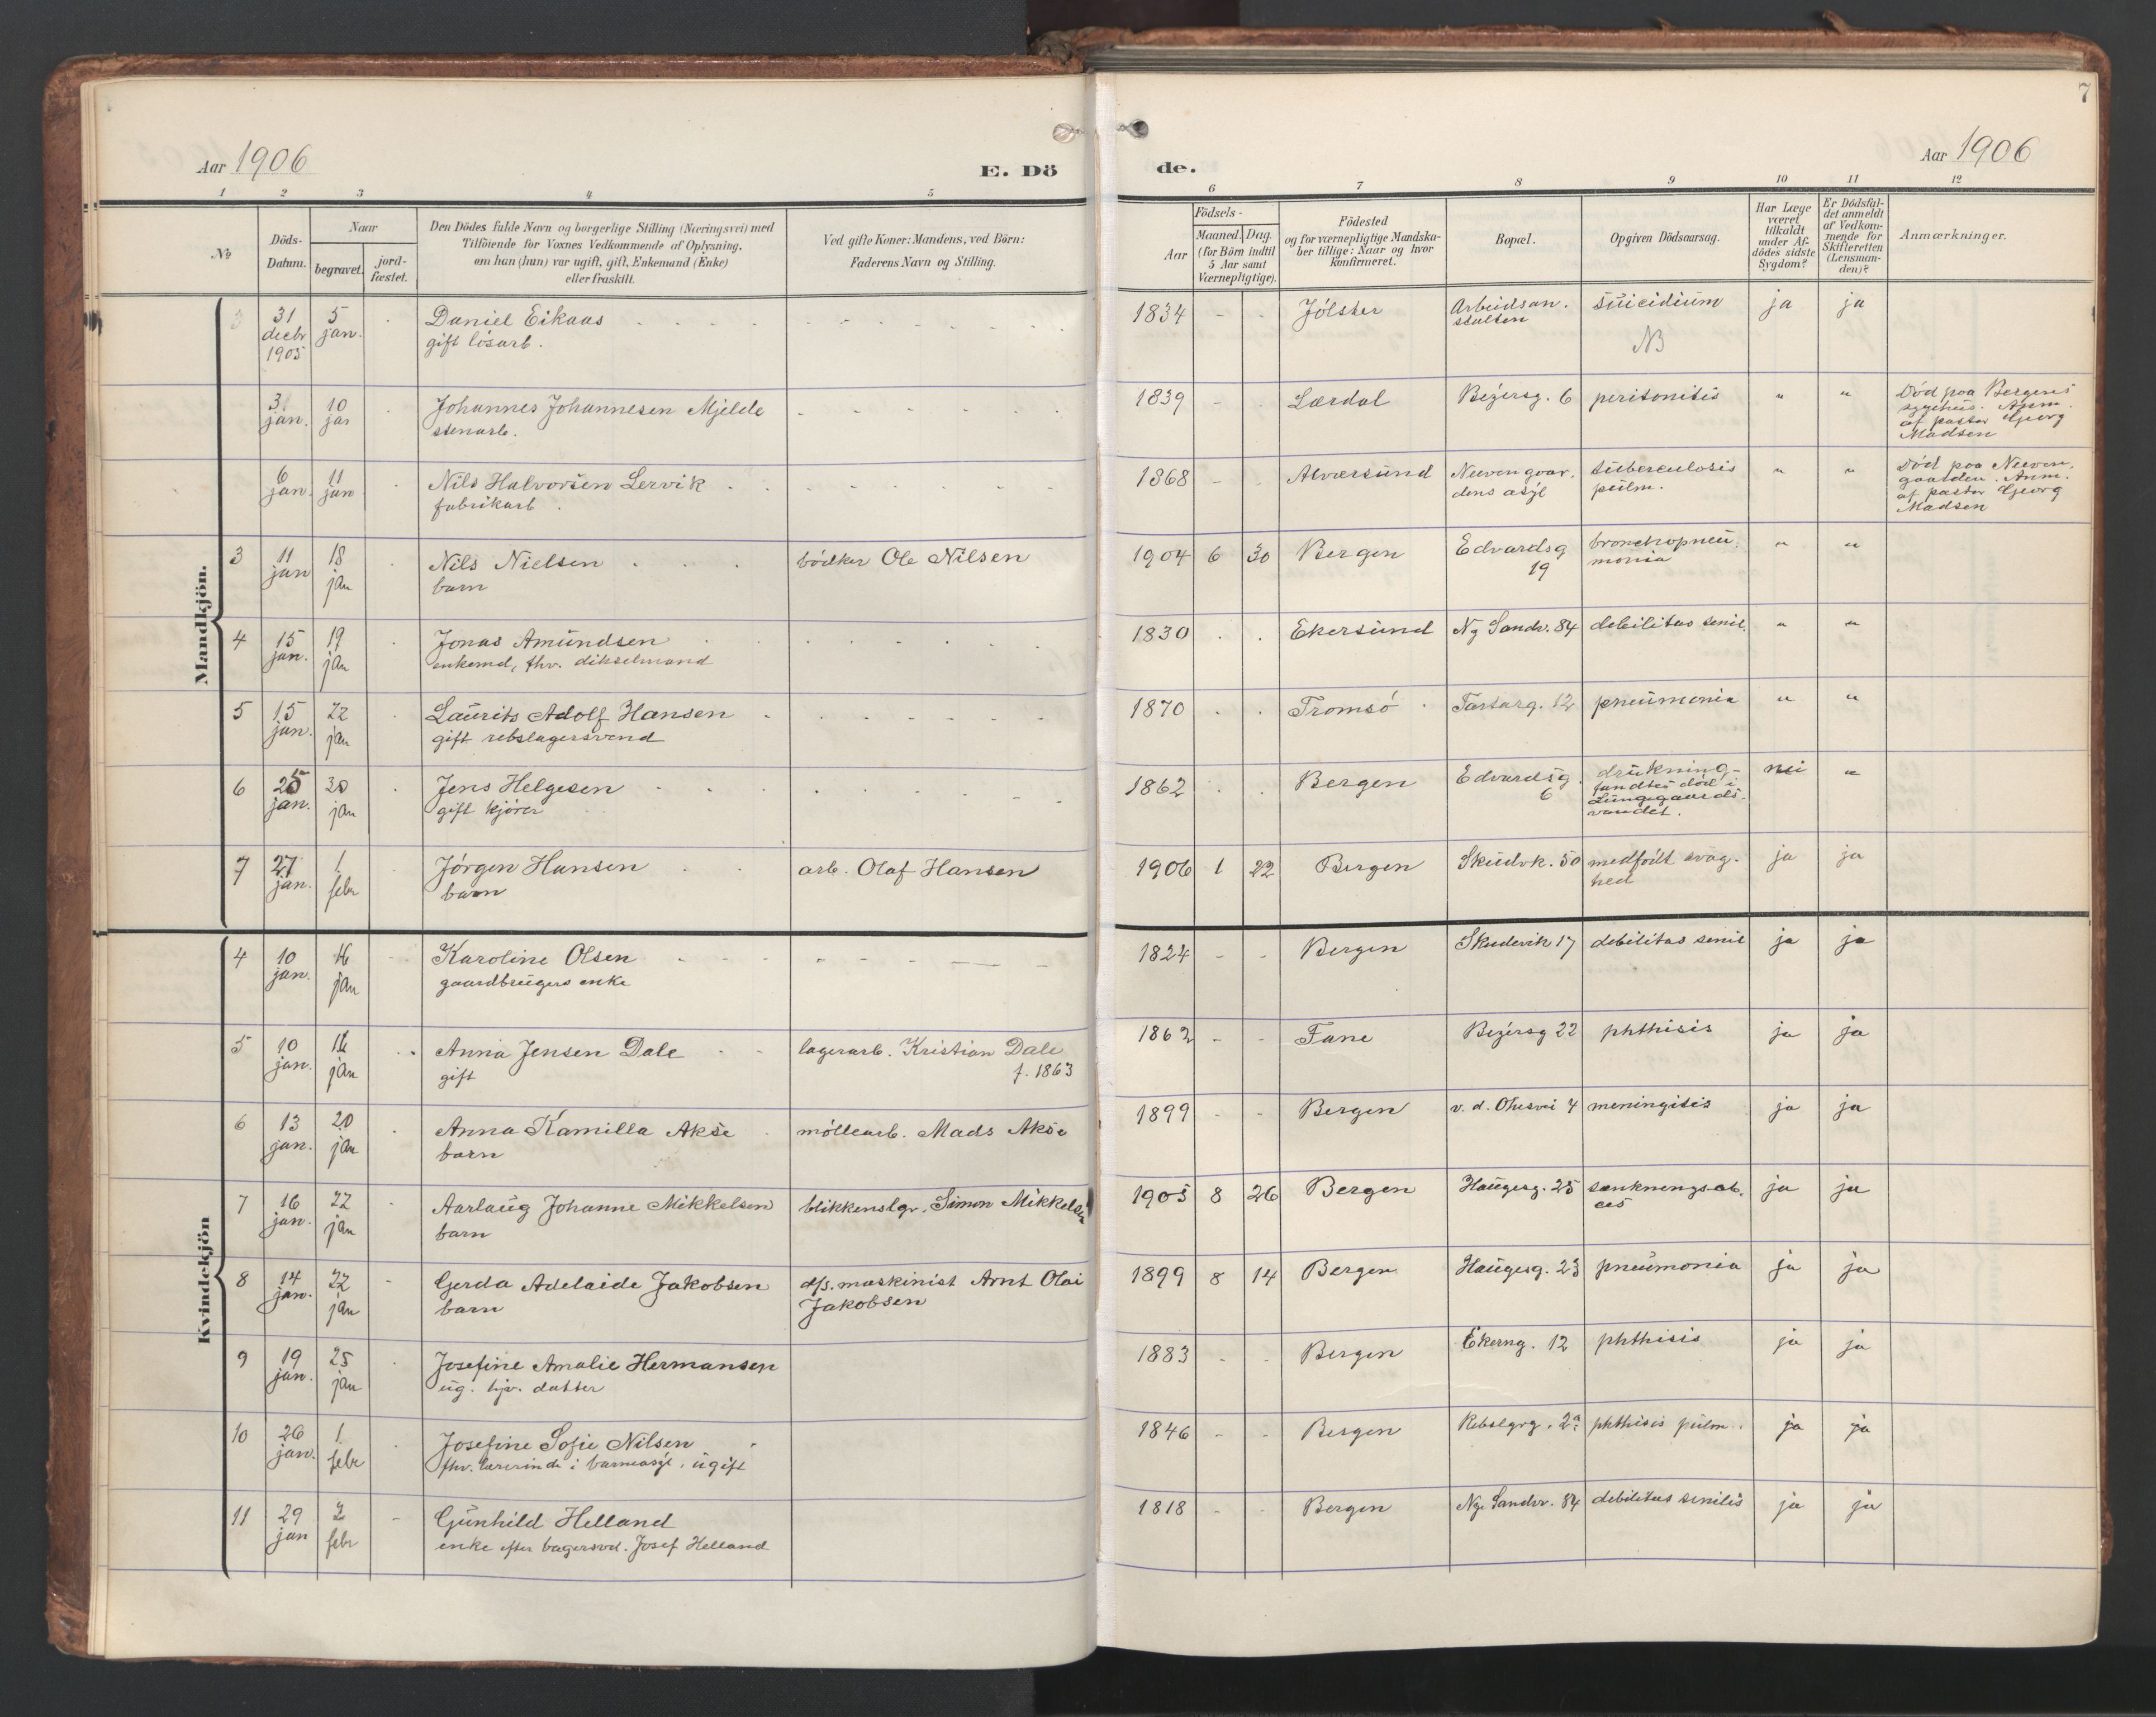 7
Aar 1906
E. Dö
de.
Aar 1906
1 2 3 4 5 6 7 8 9 10 11 12
No
Döds-
Datum.
Naar
begravet.
jord-
fæstet.
Den Dödes fulde Navn og borgerlige Stilling (Næringsvei) med
Tilföiende for Voxnes Vedkommende af Oplysning,
om han (hun) var ugift, gift, Enkemand (Enke)
eller fraskilt.
Ved gifte Koner: Mandens, ved Börn:
Faderens Navn og Stilling.
Födsels-
Aar
Maaned. Dag.
(for Börn indtil
5 Aar samt
Værnepligtige).
Födested
og for værnepligtige Mandska-
ber tillige: Naar og hvor
konfirmeret.
Bopæl.
Opgiven Dödsaarsag.
Har Læge
været
tilkaldt
under Af-
dödes sidste
Sygdom?
Er Dödsfal-
det anmeldt
af Vedkom-
mende for
Skifteretten
(Lensman-
den)?
Anmærkninger.
Mandkjön.
3 31 decbr 1905 5 jan. Daniel Eikaas
gift løsarb.
1834 - - Jølster Arbeidsan.
stalten
suicidium
NB
ja ja
3 jan. 10 jan Johannes Johannesen Mjelde
stenarb.
1839 - - Lærdal Bezersg. 6 peritonitis " "
Død paa Bergens
sygehus. Anm.
af pastor Georg
Madsen
6 jan. 11 jan Nils Halvorsen Lervik
fabrikarb.
1868 - - Alversund Neevengaar.
dens asyl
tuberculosis
pulm.
" "
Død paa Neeven.
gaarden. Anm.
af pastor Georg
Madsen
3 11 jan 18 jan Nils Nielsen
barn
bødker Ole Nilsen
1904 6 30 Bergen Edvardsg
19
bronchopneu.
monia
" "
4 15 jan. 19 jan Jonas Amundsen
enkemd, fhv. dikselmand
1830 Ekersund Ny Sandv. 84 debilitas senil. " "
5 15 jan. 22 jan Laurits Adolf Hansen
gift rebslagersvend
1870 Tromsø Tartarg. 12 pneumonia " "
6 25 jan. 30 jan Jens Helgesen
gift kjører
1862 Bergen Edvardsg.
6
drukning-
fandtes død i
Lungegaards.
vandet.
nei "
7 27 jan. 1. febr Jørgen Hansen
barn
arb. Olaf Hansen
1906 1 22 Bergen Skudvk. 50 medfødt svag-
hed
ja ja
Kvindekjön
4 10 jan. 16 jan Karoline Olsen
gaardbrugers enke
1824 - - Bergen Skudevik 17 debilitas senil ja ja
5 10 jan. 16 jan Anna Jensen Dale
gift
lagerarb. Kristian Dale
f. 1863
1862 - - Fane Bezersg 22 phthisis ja ja
6 13 jan. 20 jan Anna Kamilla Akse
barn
møllearb. Mads Akse
1899 - - Bergen v. d. Ohesvei 4 meningitis ja ja
7 16 jan. 22 jan Aarlaug Johanne Mikkelsen
barn
blikkenslgr. Simon Mikkelsen
1905 8 26 Bergen Haugesg. 25 sænkningsab.
ces
ja ja
8 14 jan. 22 jan Gerda Adelaide Jakobsen
barn
d/s. maskinist Arnt Olai
Jakobsen
1899 8 14 Bergen Haugesg. 23 pneumonia ja ja
9 19 jan. 25 jan Josefine Amalie Hermansen
ug. hjv. datter
1883 - - Bergen Ekerng. 12 phthisis ja ja
10 26 jan. 1. febr Josefine Sofie Nilsen
fhv. lærerinde i barneasyl, ugift
1846 - - Bergen Rebslgrg. 2a phthisis pulm. ja ja
11 29 jan 2 febr Gunhild Helland
enke efter bagersvd. Josef Helland
1818 - - Bergen Nye Sandvv. 84 debilitas senilis ja ja